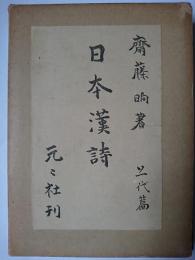 齋藤晌著 上代篇
日本漢詩
元々社刊